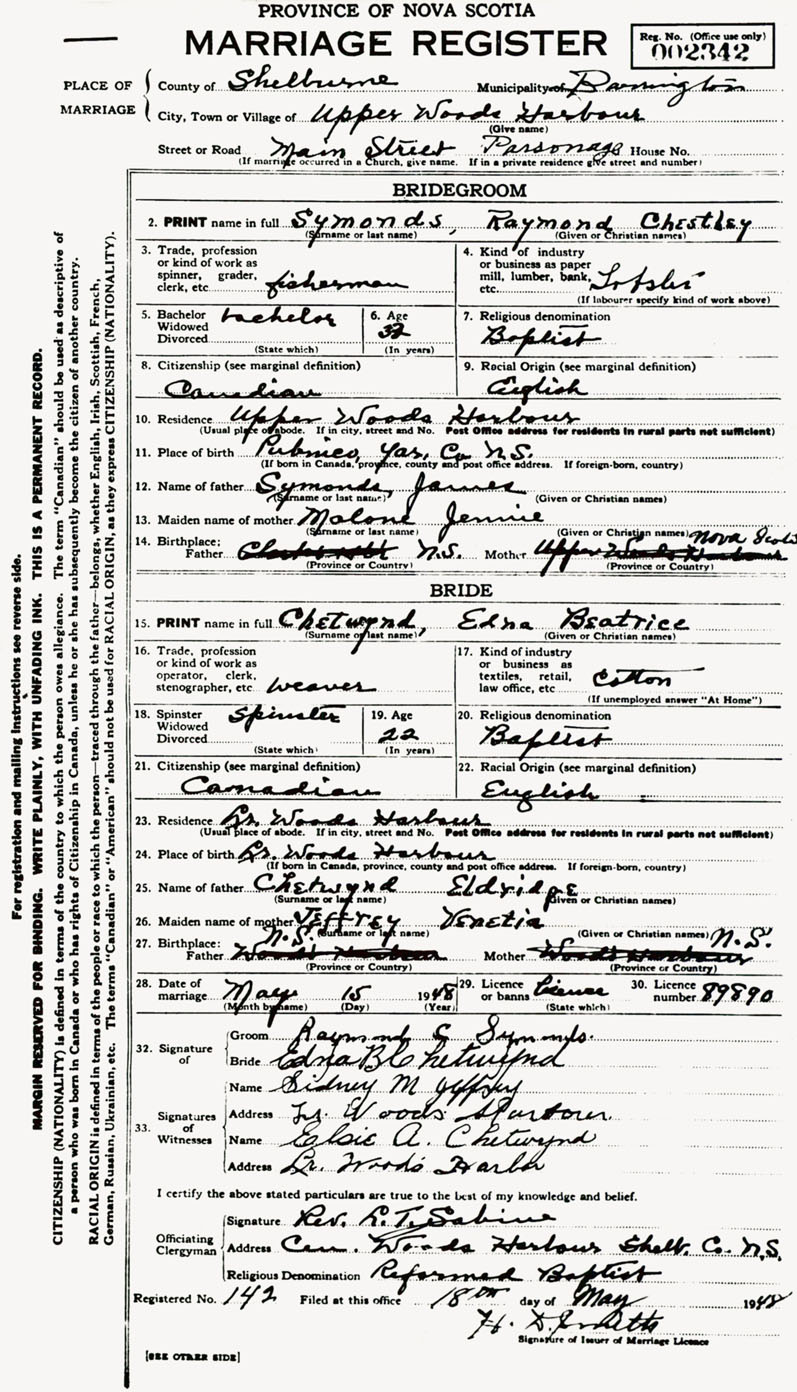 PROVINCE OF NOVA SCOTIA
MARRIAGE REGISTER
Reg. No. (Office use only)
002342
PLACE OF MARRIAGE
County of Shelburne Municipality of Barrington
City, Town or Village of Upper Woods Harbour
(Give name)
Street or Road Main Street Parsonage House No.
(If marriage occurred in a Church, give name. If in a private residence give street and number)
BRIDEGROOM
2. PRINT name in full Symonds, Raymond Chestley
(Surname or last name) (Given or Christian names)
3. Trade, profession or kind of work as spinner, grader, clerk, etc. fisherman
4. Kind of industry or business as paper mill, lumber, bank, etc.
(If labourer specify kind of work above)
5. Bachelor Widowed Divorced bachelor
(State which)
6. Age 32
(In years)
7. Religious denomination
Baptist
8. Citizenship (see marginal definition)
Canadian
9. Racial Origin (see marginal definition)
English
10. Residence Upper Woods Harbour
(Usual place of abode. If in city, street and No. Post Office address for residents in rural parts not sufficient)
11. Place of birth Pubnico, Yar. Co N.S.
(If born in Canada, province, county and post office address. If foreign-born, country)
12. Name of father Symonds, James
(Surname or last name) (Given or Christian names)
13. Maiden name of mother Malone Jennie
(Surname or last name) (Given or Christian names) Nova Scotia
14. Birthplace: Father N.S. Mother Upper Woods Harbour
(Province or Country) (Province or Country)
BRIDE
15. PRINT name in full Chetwynd, Edna Beatrice
(Surname or last name) (Given or Christian names)
16. Trade, profession or kind of work as operator, clerk, stenographer, etc. weaver
17. Kind of industry or business as textiles, retail, law office, etc. Cotton
(If unemployed answer "At Home")
18. Spinster Widowed Divorced Spinster
(State which)
19. Age 22
(In years)
20. Religious denomination
Baptist
21. Citizenship (see marginal definition)
Canadian
22. Racial Origin (see marginal definition)
English
23. Residence Lr. Woods Harbour
(Usual place of abode. If in city, street and No. Post Office address for residents in rural parts not sufficient)
24. Place of birth Lr. Woods Harbour
(If born in Canada, province, county and post office address. If foreign-born, country)
25. Name of father Chetwynd Eldridge
(Surname or last name) (Given or Christian names)
26. Maiden name of mother Jeffrey Venetia
N.S. (Surname or last name) (Given or Christian names) N.S.
27. Birthplace: Father Woods Harbour Mother Woods Harbour
(Province or Country) (Province or Country)
28. Date of marriage May 15 1948
(Month by name) (Day) (Year)
29. Licence or banns license
(State which)
30. Licence number 89890
32. Signature of
Groom Raymond C Symonds.
Bride Edna B Chetwynd
33. Signatures of Witnesses
Name Sidney M Jeffrey
Address Lr. Woods Harbour
Name Elsie A. Chetwynd
Address Lr. Woods Harbor
I certify the above stated particulars are true to the best of my knowledge and belief.
Officiating Clergyman
Signature Rev. L. T. Sabine
Address Cen. Woods Harbour Shelb. Co. N.S.
Religious Denomination Reformed Baptist
Registered No. 142 Filed at this office 18th day of May 1948
Signature of Issuer of Marriage Licence
[SEE OTHER SIDE]
For registration and mailing instructions see reverse side.
MARGIN RESERVED FOR BINDING. WRITE PLAINLY, WITH UNFADING INK. THIS IS A PERMANENT RECORD.
CITIZENSHIP (NATIONALITY) is defined in terms of the country to which the person owes allegiance. The term "Canadian" should be used as descriptive of
a person who was born in Canada or who has rights of Citizenship in Canada, unless he or she has subsequently become the citizen of another country.
RACIAL ORIGIN is defined in terms of the people or race to which the person—traced through the father—belongs, whether English, Irish, Scottish, French,
German, Russian, Ukrainian, etc. The terms "Canadian" or "American" should not be used for RACIAL ORIGIN, as they express CITIZENSHIP (NATIONALITY).